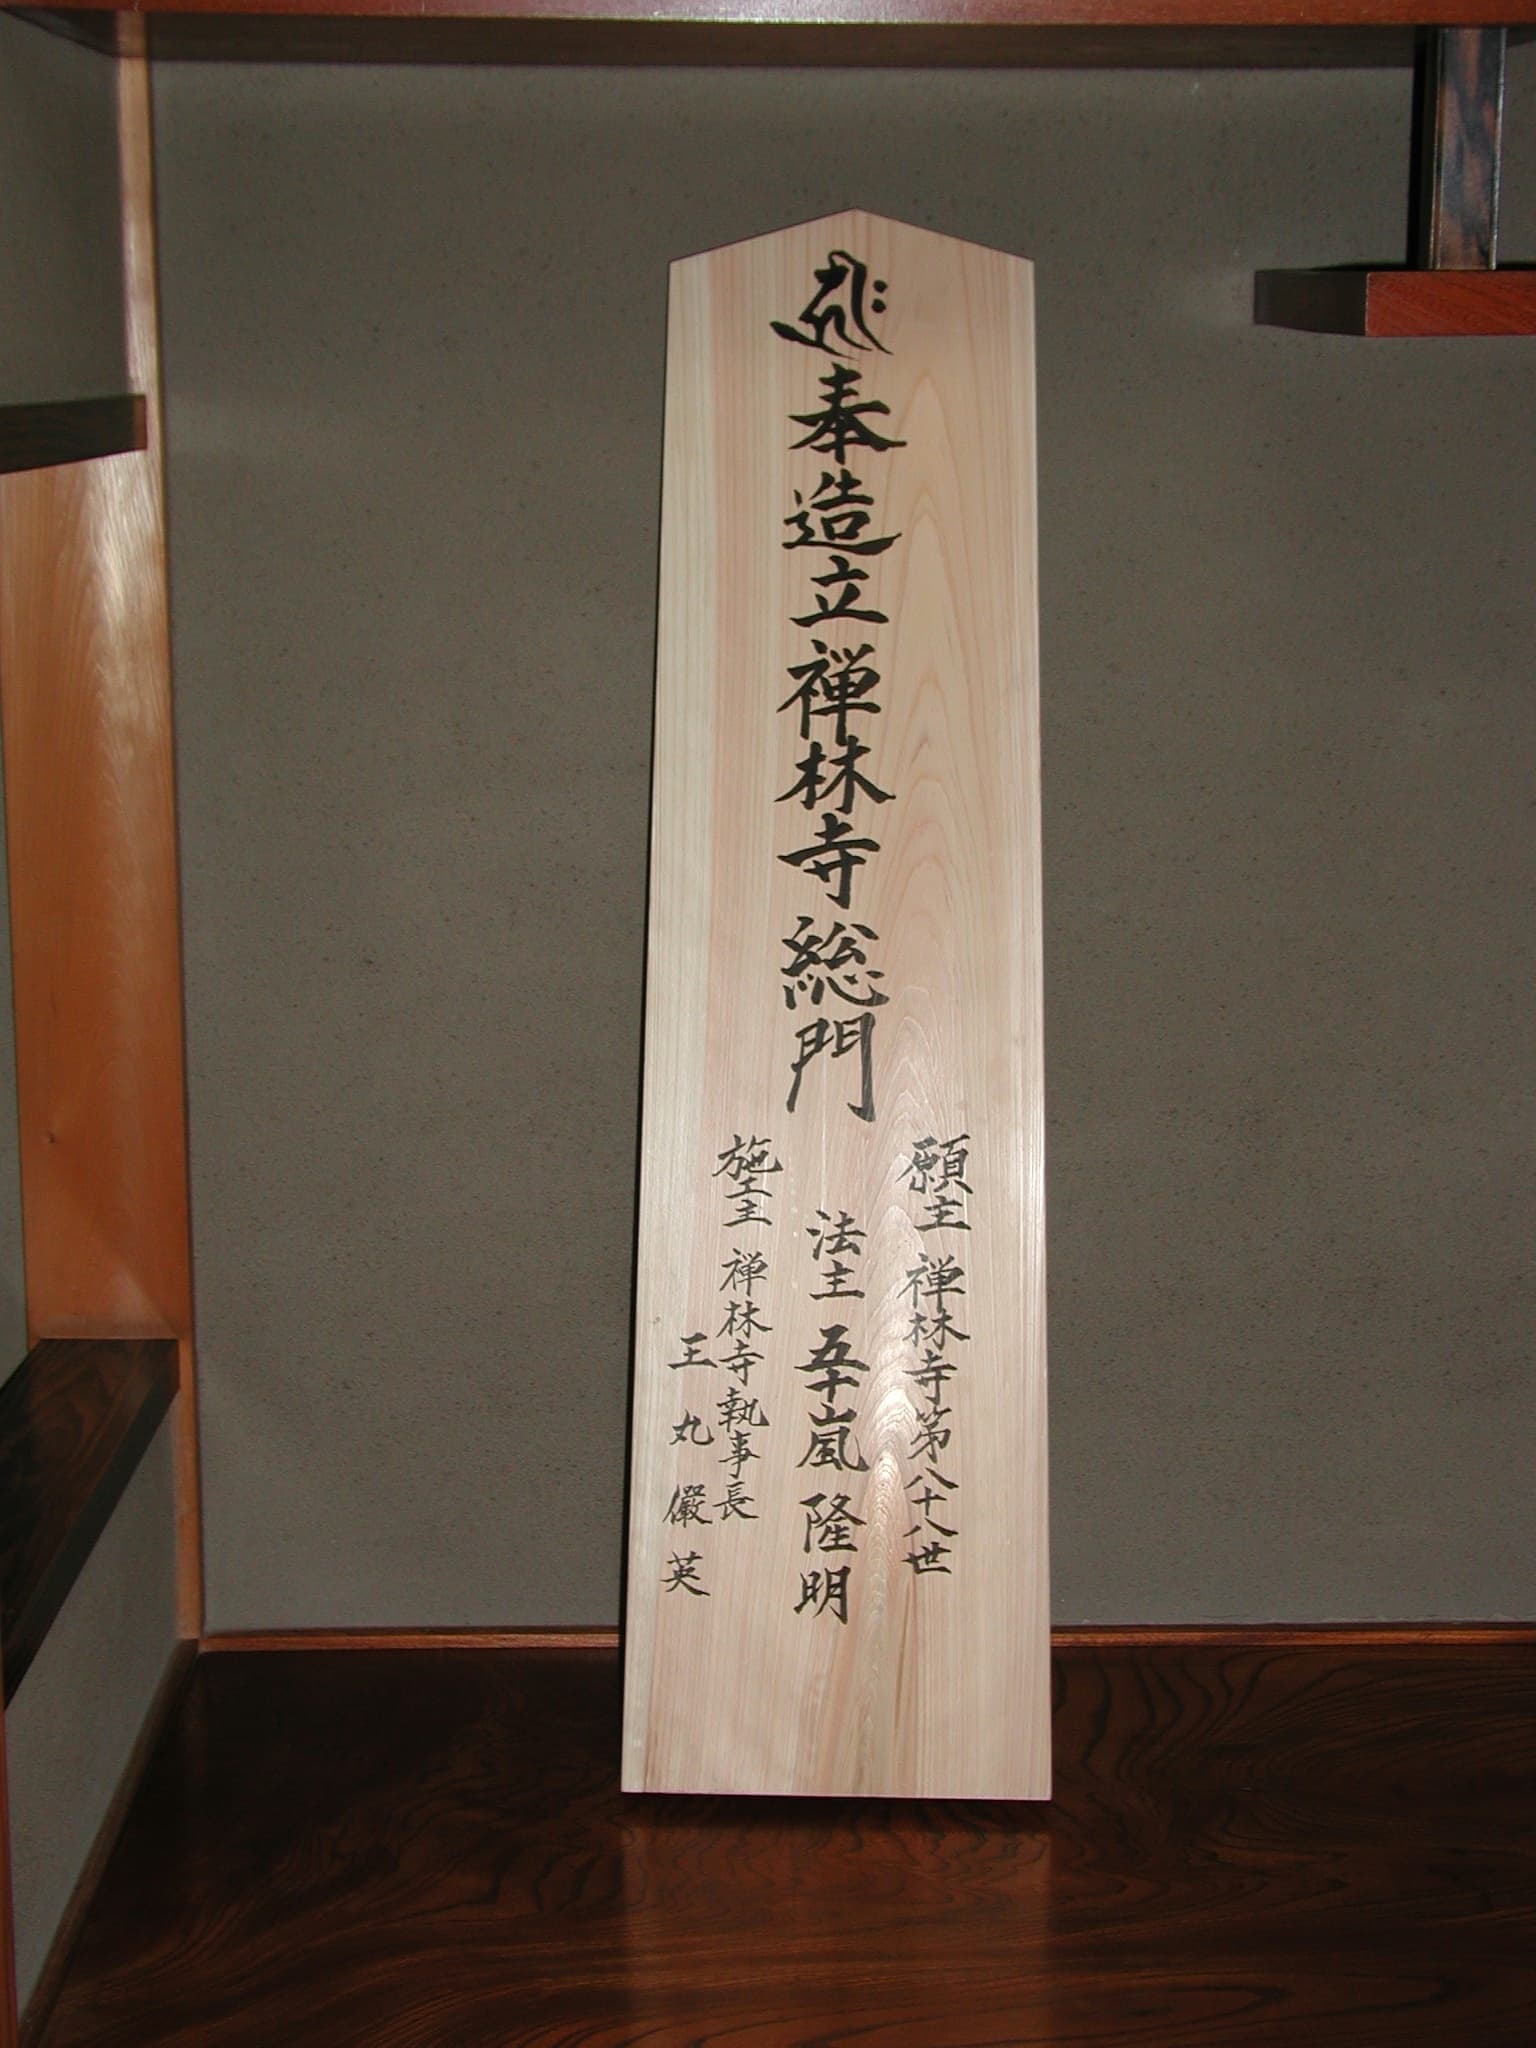 ह्रीः
奉造立禅林寺総門
願主 禅林寺第八十八世
法主 五十嵐 隆明
施主 禅林寺執事長
王丸儼英